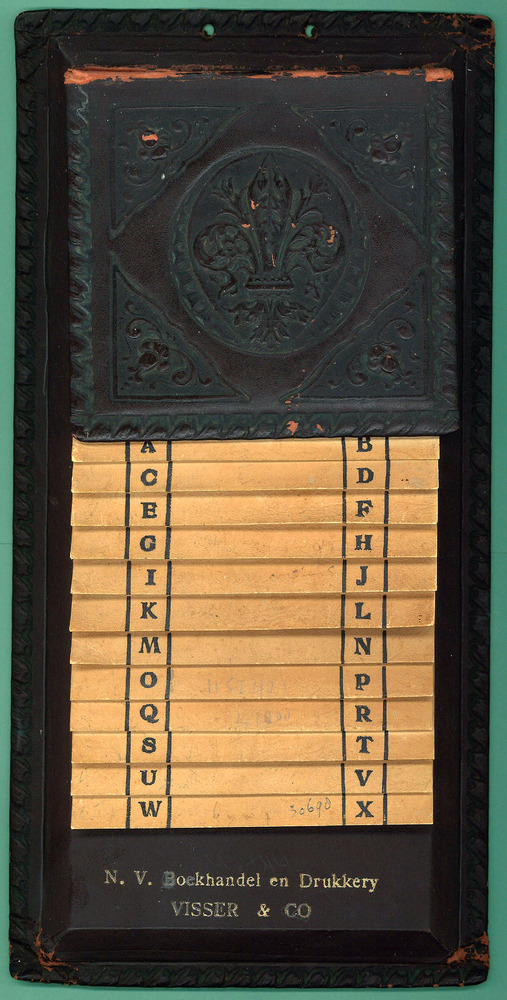 A B
C D
E F
G H
I J
K L
M N
O P
Q R
S T
U V
W 30690 X
N. V. Boekhandel en Drukkery
VISSER & CO